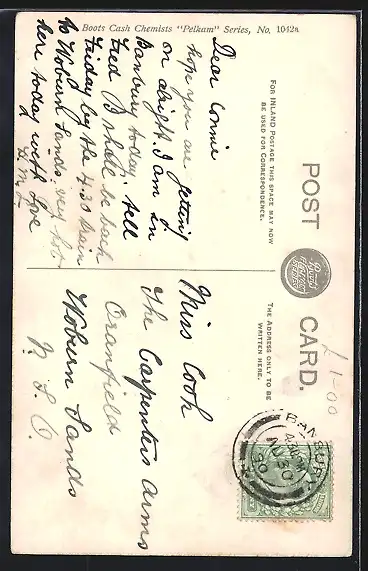 Boots Cash Chemists "Pelham" Series, No. 1042A
POST CARD.
FOR INLAND POSTAGE THIS SPACE MAY NOW
BE USED FOR CORRESPONDENCE.
THE ADDRESS ONLY TO BE
WRITTEN HERE.
Dear Connie
hope you are getting
on alright. I am in
Banbury today. tell
Fred B shall be back
Friday by the 4.30 train
to Woburn Sands. very hot
here today with love
Miss Cook
The Carpenters Arms
Cranfield
Woburn Sands
R. S. O.
£1-00
BANBURY
4.30 PM
30